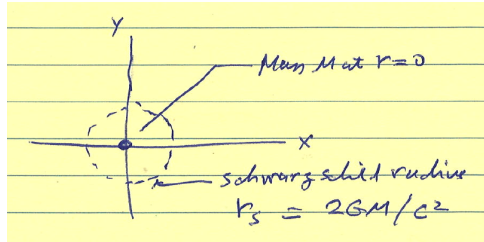 y
Mass M at r=0
x
schwarzschild radius
rs = 2GM/c²